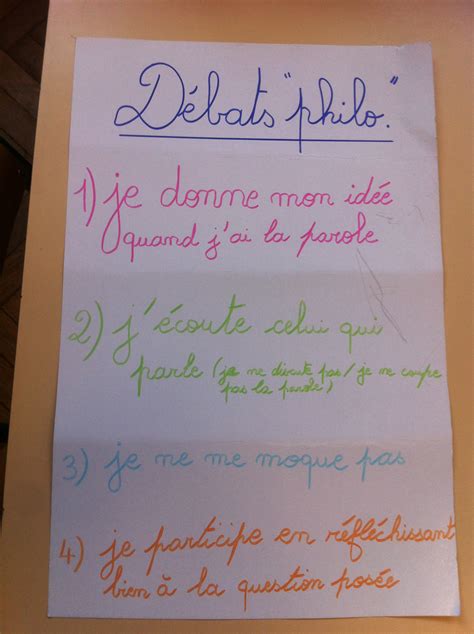 Débats "philo."
1) je donne mon idée
quand j'ai la parole
2) j'écoute celui qui
parle (je ne discute pas / je ne coupe
pas la parole)
3) je ne me moque pas
4) je participe en réfléchissant
bien à la question posée